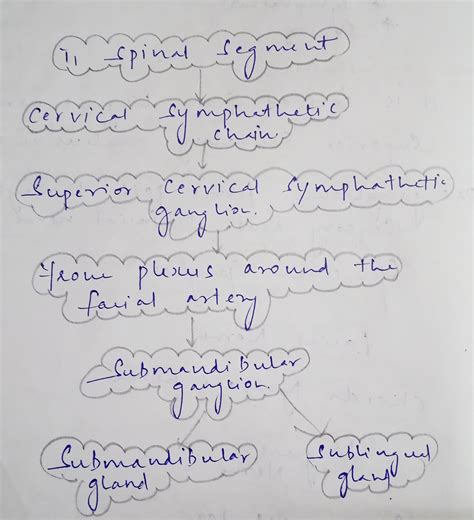 T1 Spinal Segment
Cervical Symphathetic
chain.
Superior Cervical Symphathetic
ganglion.
From plexus around the
facial artery
Submandibular
ganglion.
Submandibular
gland
Sublingual
gland